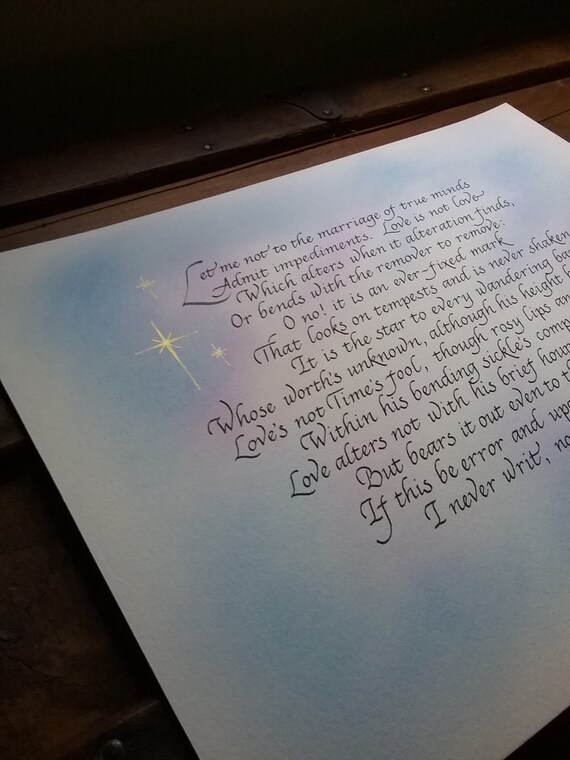 Let me not to the marriage of true minds
Admit impediments. Love is not love
Which alters when it alteration finds,
Or bends with the remover to remove:
O no! it is an ever-fixed mark
That looks on tempests and is never shaken
It is the star to every wandering ba
Whose worth's unknown, although his height b
Love's not Time's fool, though rosy lips an
Within his bending sickle's comp
Love alters not with his brief hour
But bears it out even to th
If this be error and upo
I never writ, no